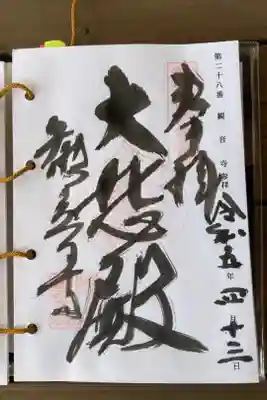 第二十八番 観音寺 参拝
令和五年四月十三日
奉拝
大悲殿
観音寺